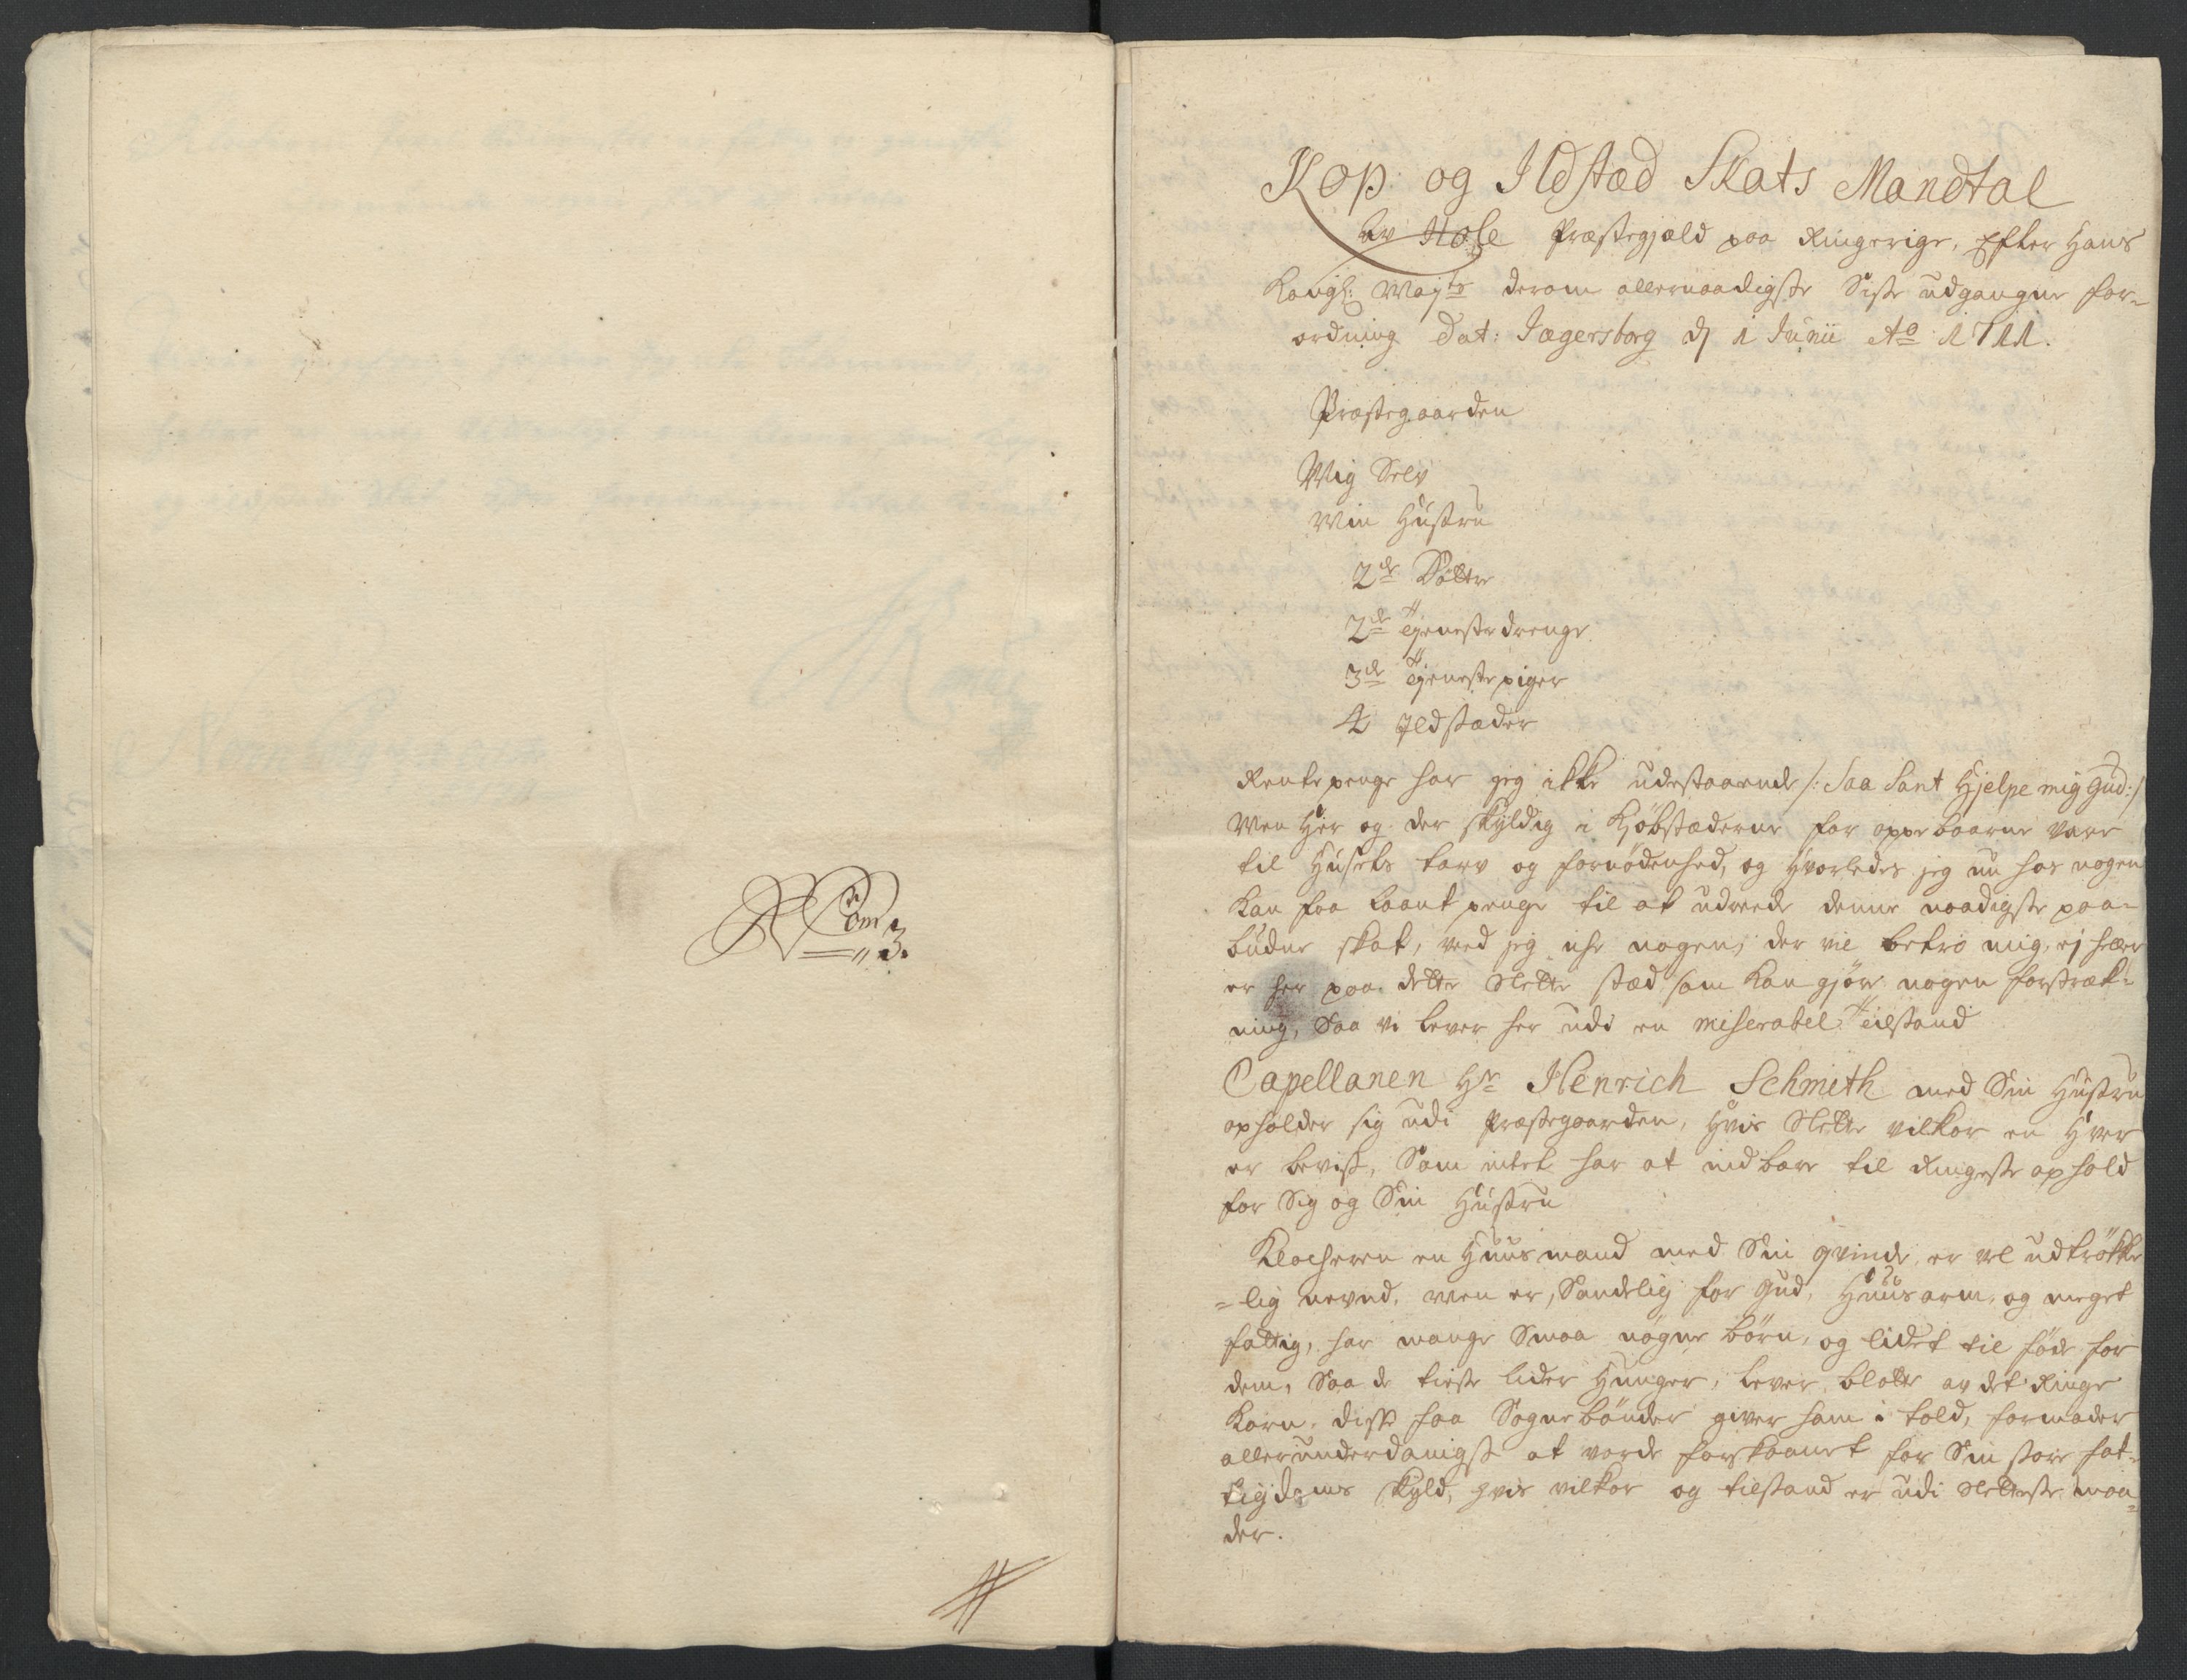 N Com 3.
Kop og Ildsted Skats Mandtal
Av Hole Præstegield paa Ringerige, Efter Hans
Kongl: Mayts derom allernaadigste Siste udgangne for-
ordning Dat: Jægersborg d 1 Junii Ao 1711.
Præstegaarden
Mig Selv
Min Hustru
2de Döttre
2de Tjenestedrenge
3de Tjenestepiger
4 Ildstæder
Rentepenge har jeg ikke udestaaende /: Saa Sant Hjelpe mig Gud :/
Men Hér og der skyldig i Kjöbstæderne for oppebaarne vare
til Husets tarv og fornödenhed, og Hvorledes jeg nu hos nogen
kan faa laant penge til at udreede denne naadigste paa-
budne skat, veed jeg iche nogen, der vil betro mig, ej heller
er her paa dette Slette stæd som kan gjöre nogen forstræk-
ning, Saa vi lever her udi en miserabel Tilstand
Capellanen Hr Henrich Schmith med Sin Hustru
opholder sig udi Præstegaarden, Hvis Slette vilkor en Hver
er bevist, Som intet har at indbære til Ringeste ophold
for Sig og Sin Hustru
Klocheren en Huusmand med Sin qvinde, er vel udtrökke
-lig nevnd, men er, Sandelig for Gud, Huusarm, og meget
fattig, har mange Smaa nögne börn, og lidet til föde for
dem, Saa de tieste lider Hunger, lever blotte av det Ringe
Korn, disse faa Sognebönder giver ham i told, formoder
allerunderdanigst at vorde forskaanet for Sin store fat-
tigdoms skyld, hvis vilkor og tilstand er udi Sletteste maa-
der.